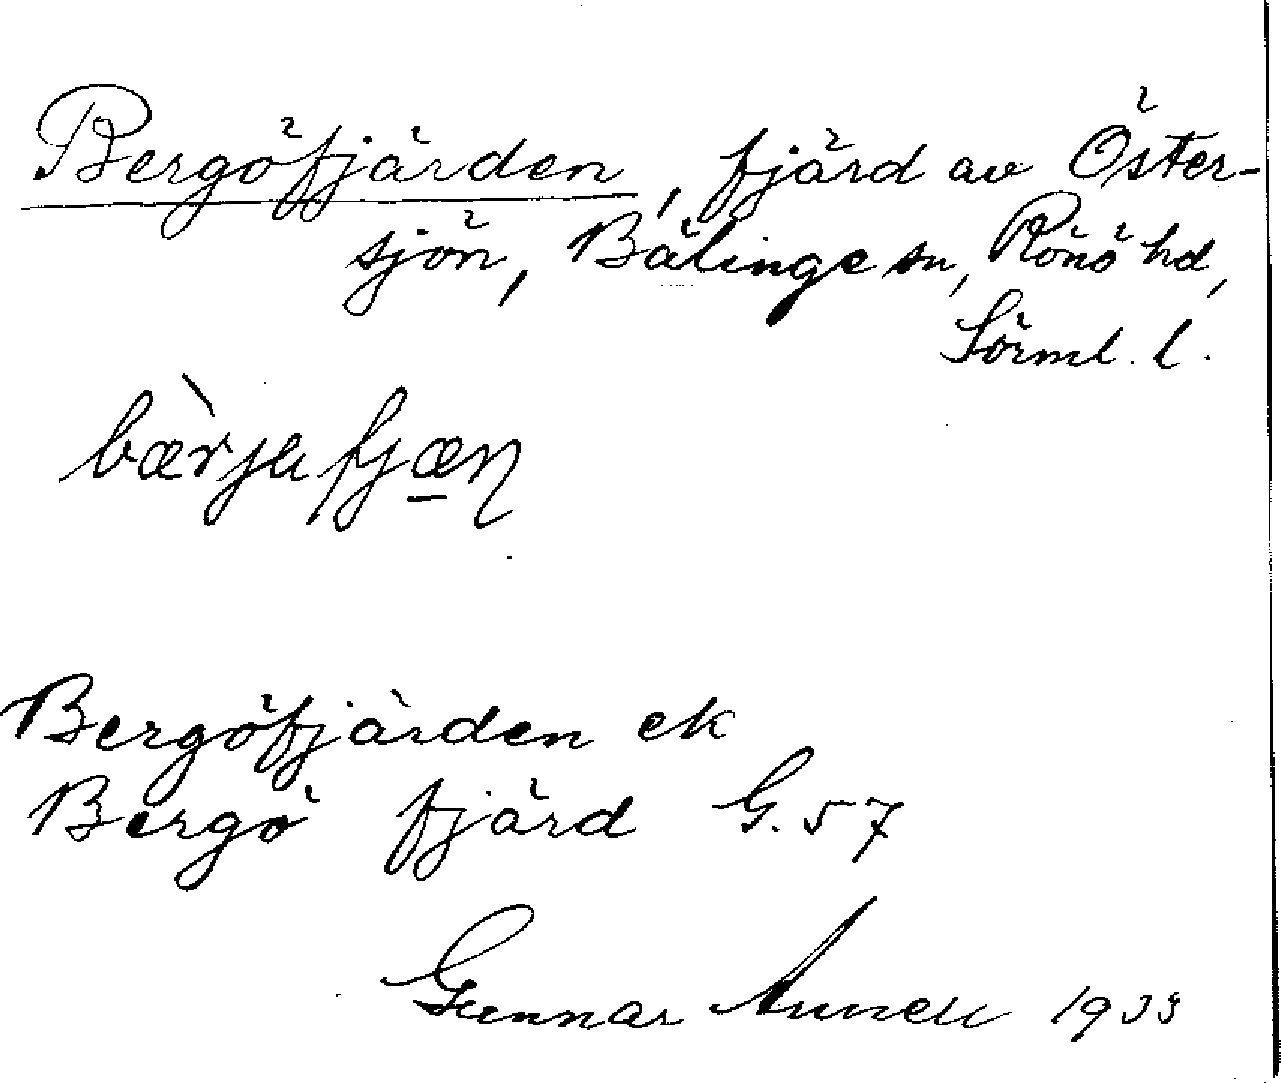 Bergöfjärden, fjärd av Öster-
sjön, Bälinge sn, Rönö hd,
Sörml. l.
bæ̀rjafjæṇ
Bergöfjärden ek
Bergö fjärd G. 57
Gunnar Annell 1933